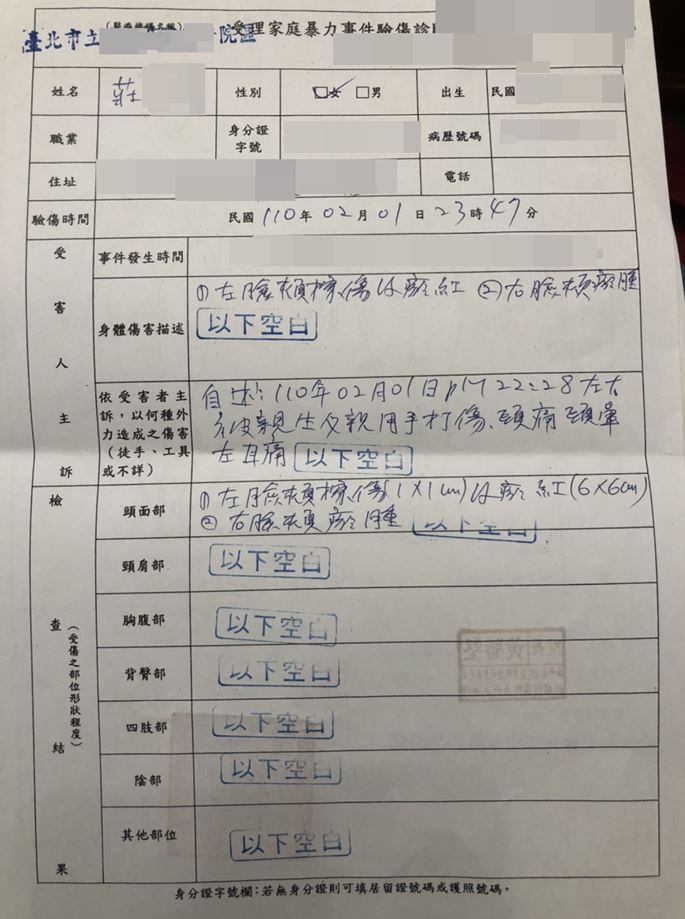 (醫療機構名稱)
臺北市立 院區受理家庭暴力事件驗傷診
姓名 莊 性別 ☑女 □男 出生 民國
職業 身分證字號 病歷號碼
住址 電話
驗傷時間 民國 110 年 02 月 01 日 23 時 47 分
受害人主訴
事件發生時間
身體傷害描述 ①左臉頰擦傷及瘀紅 ②右臉頰瘀腫
以下空白
依受害者主訴,以何種外力造成之傷害(徒手、工具或不詳)
自述:110年02月01日pM 22:28左右
被親生父親用手打傷、頭痛頭暈
左耳痛 以下空白
檢查結果
(受傷之部位形狀程度)
頭面部 ①左臉頰擦傷(1X1cm)及瘀紅(6X6cm)
②右臉頰瘀腫 以下空白
頸肩部 以下空白
胸腹部 以下空白
背臀部 以下空白
四肢部 以下空白
陰部 以下空白
其他部位 以下空白
身分證字號欄:若無身分證則可填居留證號碼或護照號碼。